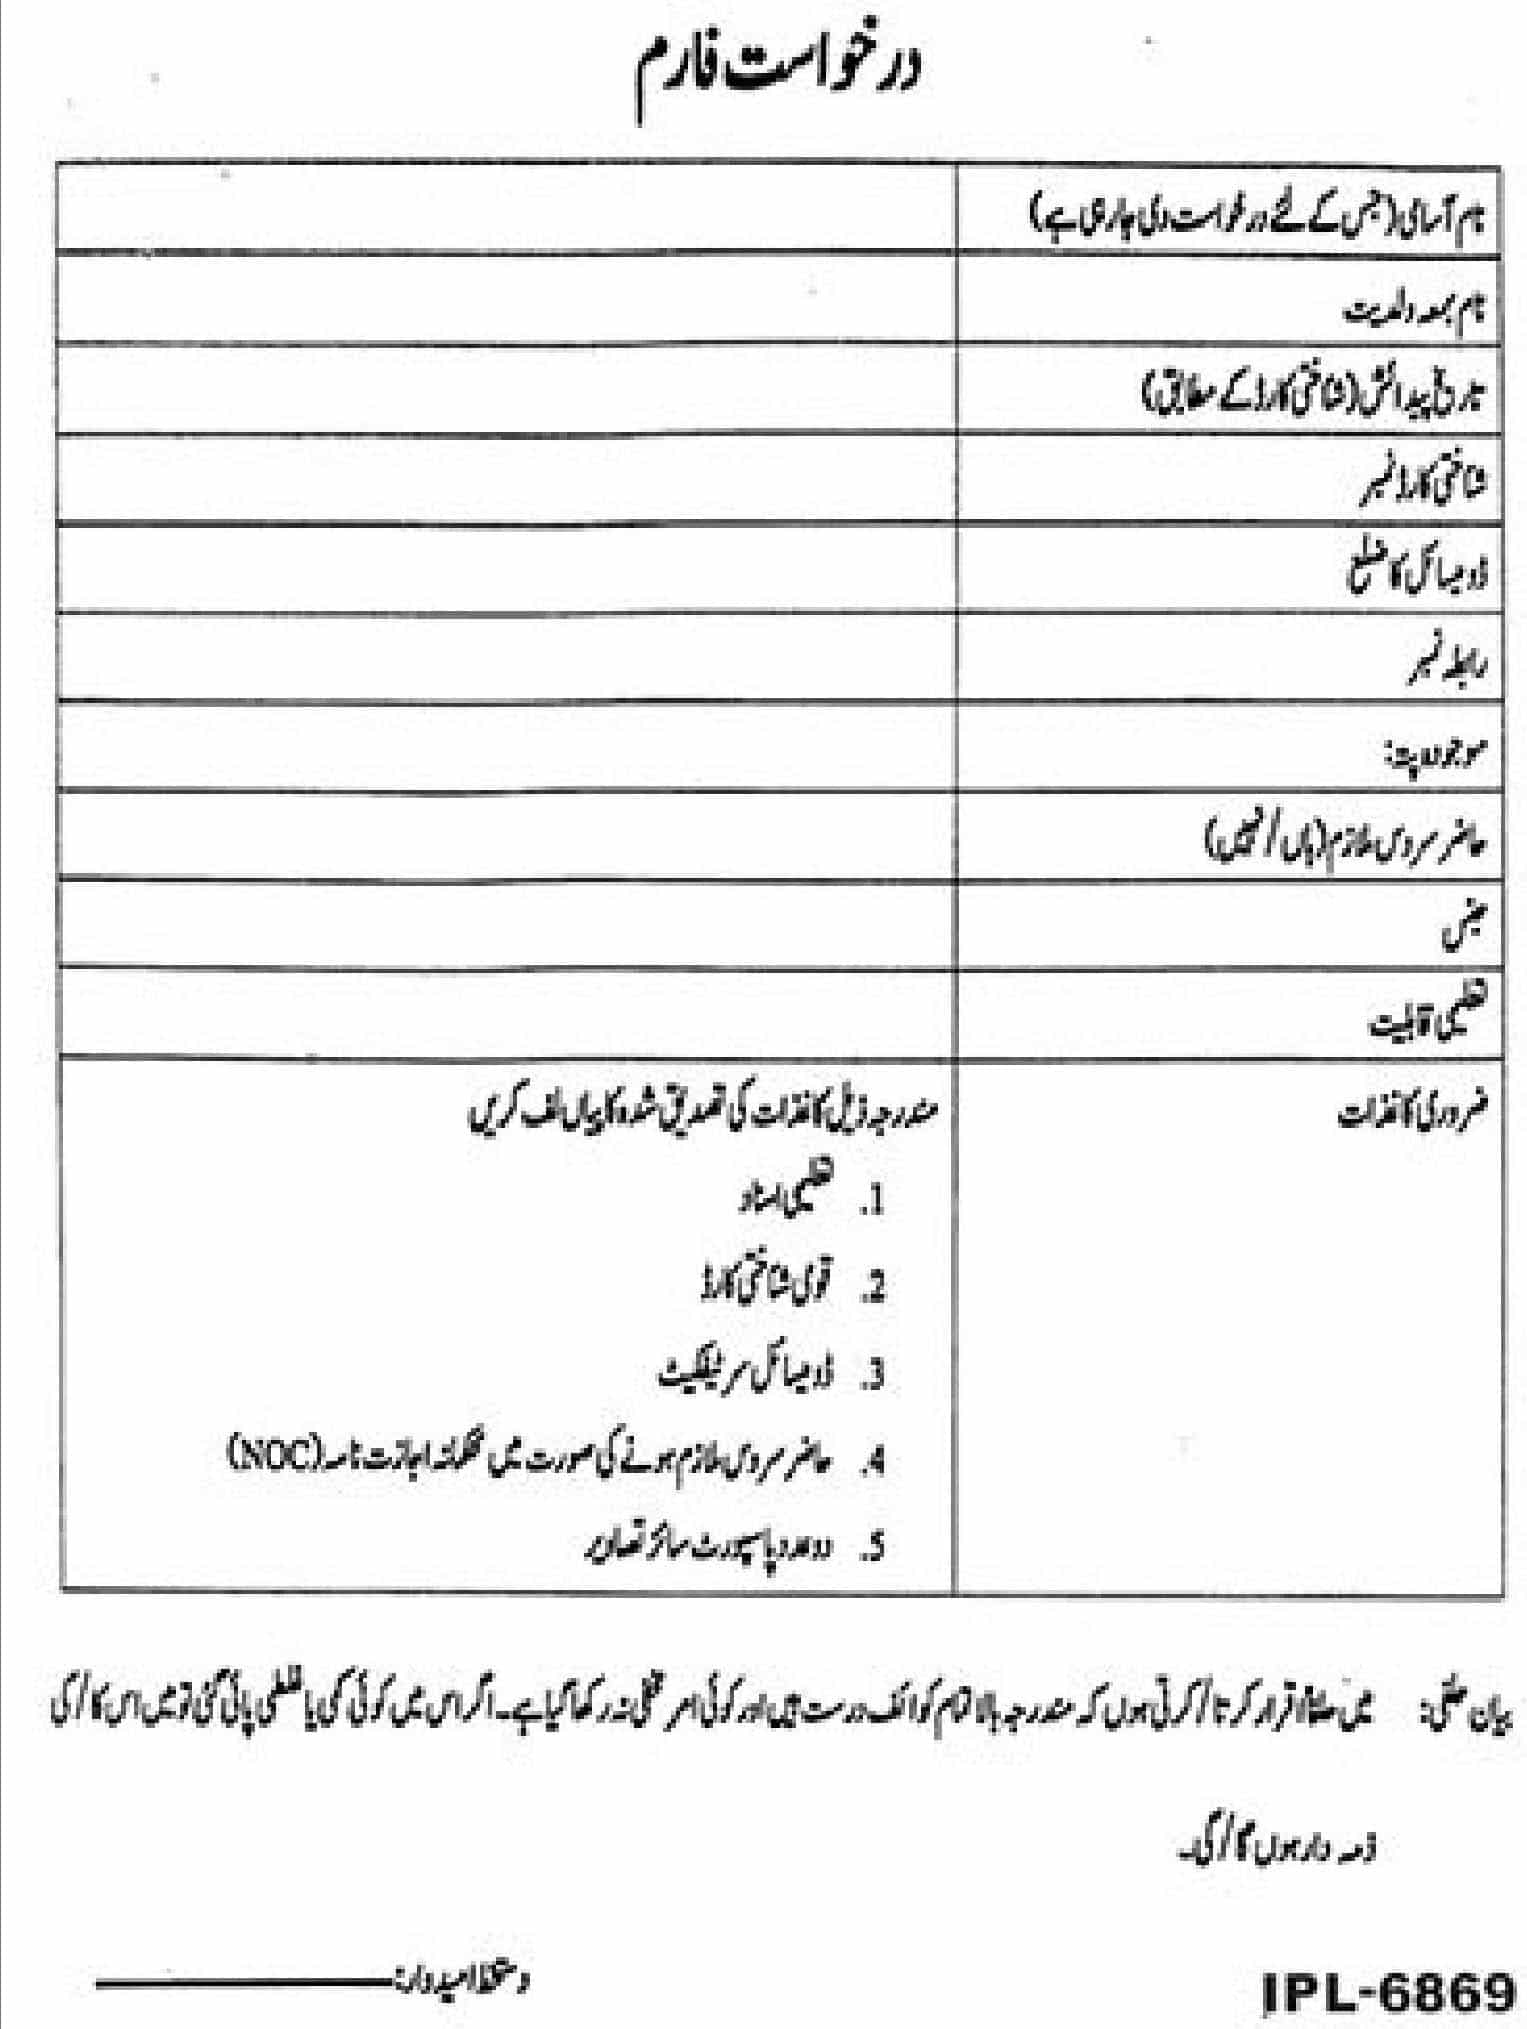 درخواست فارم
نام آسامی (جس کے لئے درخواست دی جا رہی ہے)
نام بمعہ ولدیت
تاریخ پیدائش (شناختی کارڈ کے مطابق)
شناختی کارڈ نمبر
ڈومیسائل کا ضلع
رابطہ نمبر
موجودہ پتہ:
حاضر سروس ملازم (ہاں / نہیں)
جنس
تعلیمی قابلیت
ضروری کاغذات
مندرجہ ذیل کاغذات کی تصدیق شدہ کاپیاں لف کریں
1. تعلیمی اسناد
2. قومی شناختی کارڈ
3. ڈومیسائل سرٹیفکیٹ
4. حاضر سروس ملازم ہونے کی صورت میں محکمانہ اجازت نامہ (NOC)
5. دو عدد پاسپورٹ سائز تصاویر
بیان حلفی: میں حلفاً اقرار کرتا / کرتی ہوں کہ مندرجہ بالا تمام کوائف درست ہیں اور کوئی امر مخفی نہ رکھا گیا ہے۔ اگر اس میں کوئی کمی یا غلطی پائی گئی تو میں اس کا / کی
ذمہ دار ہوں گا / گی۔
دستخط امیدوار:
IPL-6869